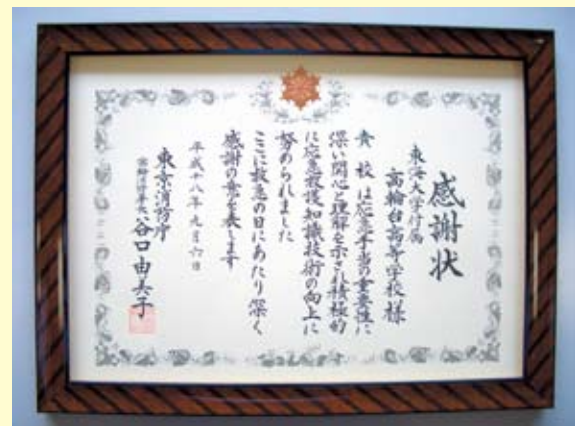 感謝状
東海大学付属
高輪台高等学校様
貴校は応急手当の重要性に
深い関心と理解を示され積極的
に応急救護知識技術の向上に
努められました
ここに救急の日にあたり深く
感謝の意を表します
平成十八年九月六日
東京消防庁
高輪消防署長 谷口由美子